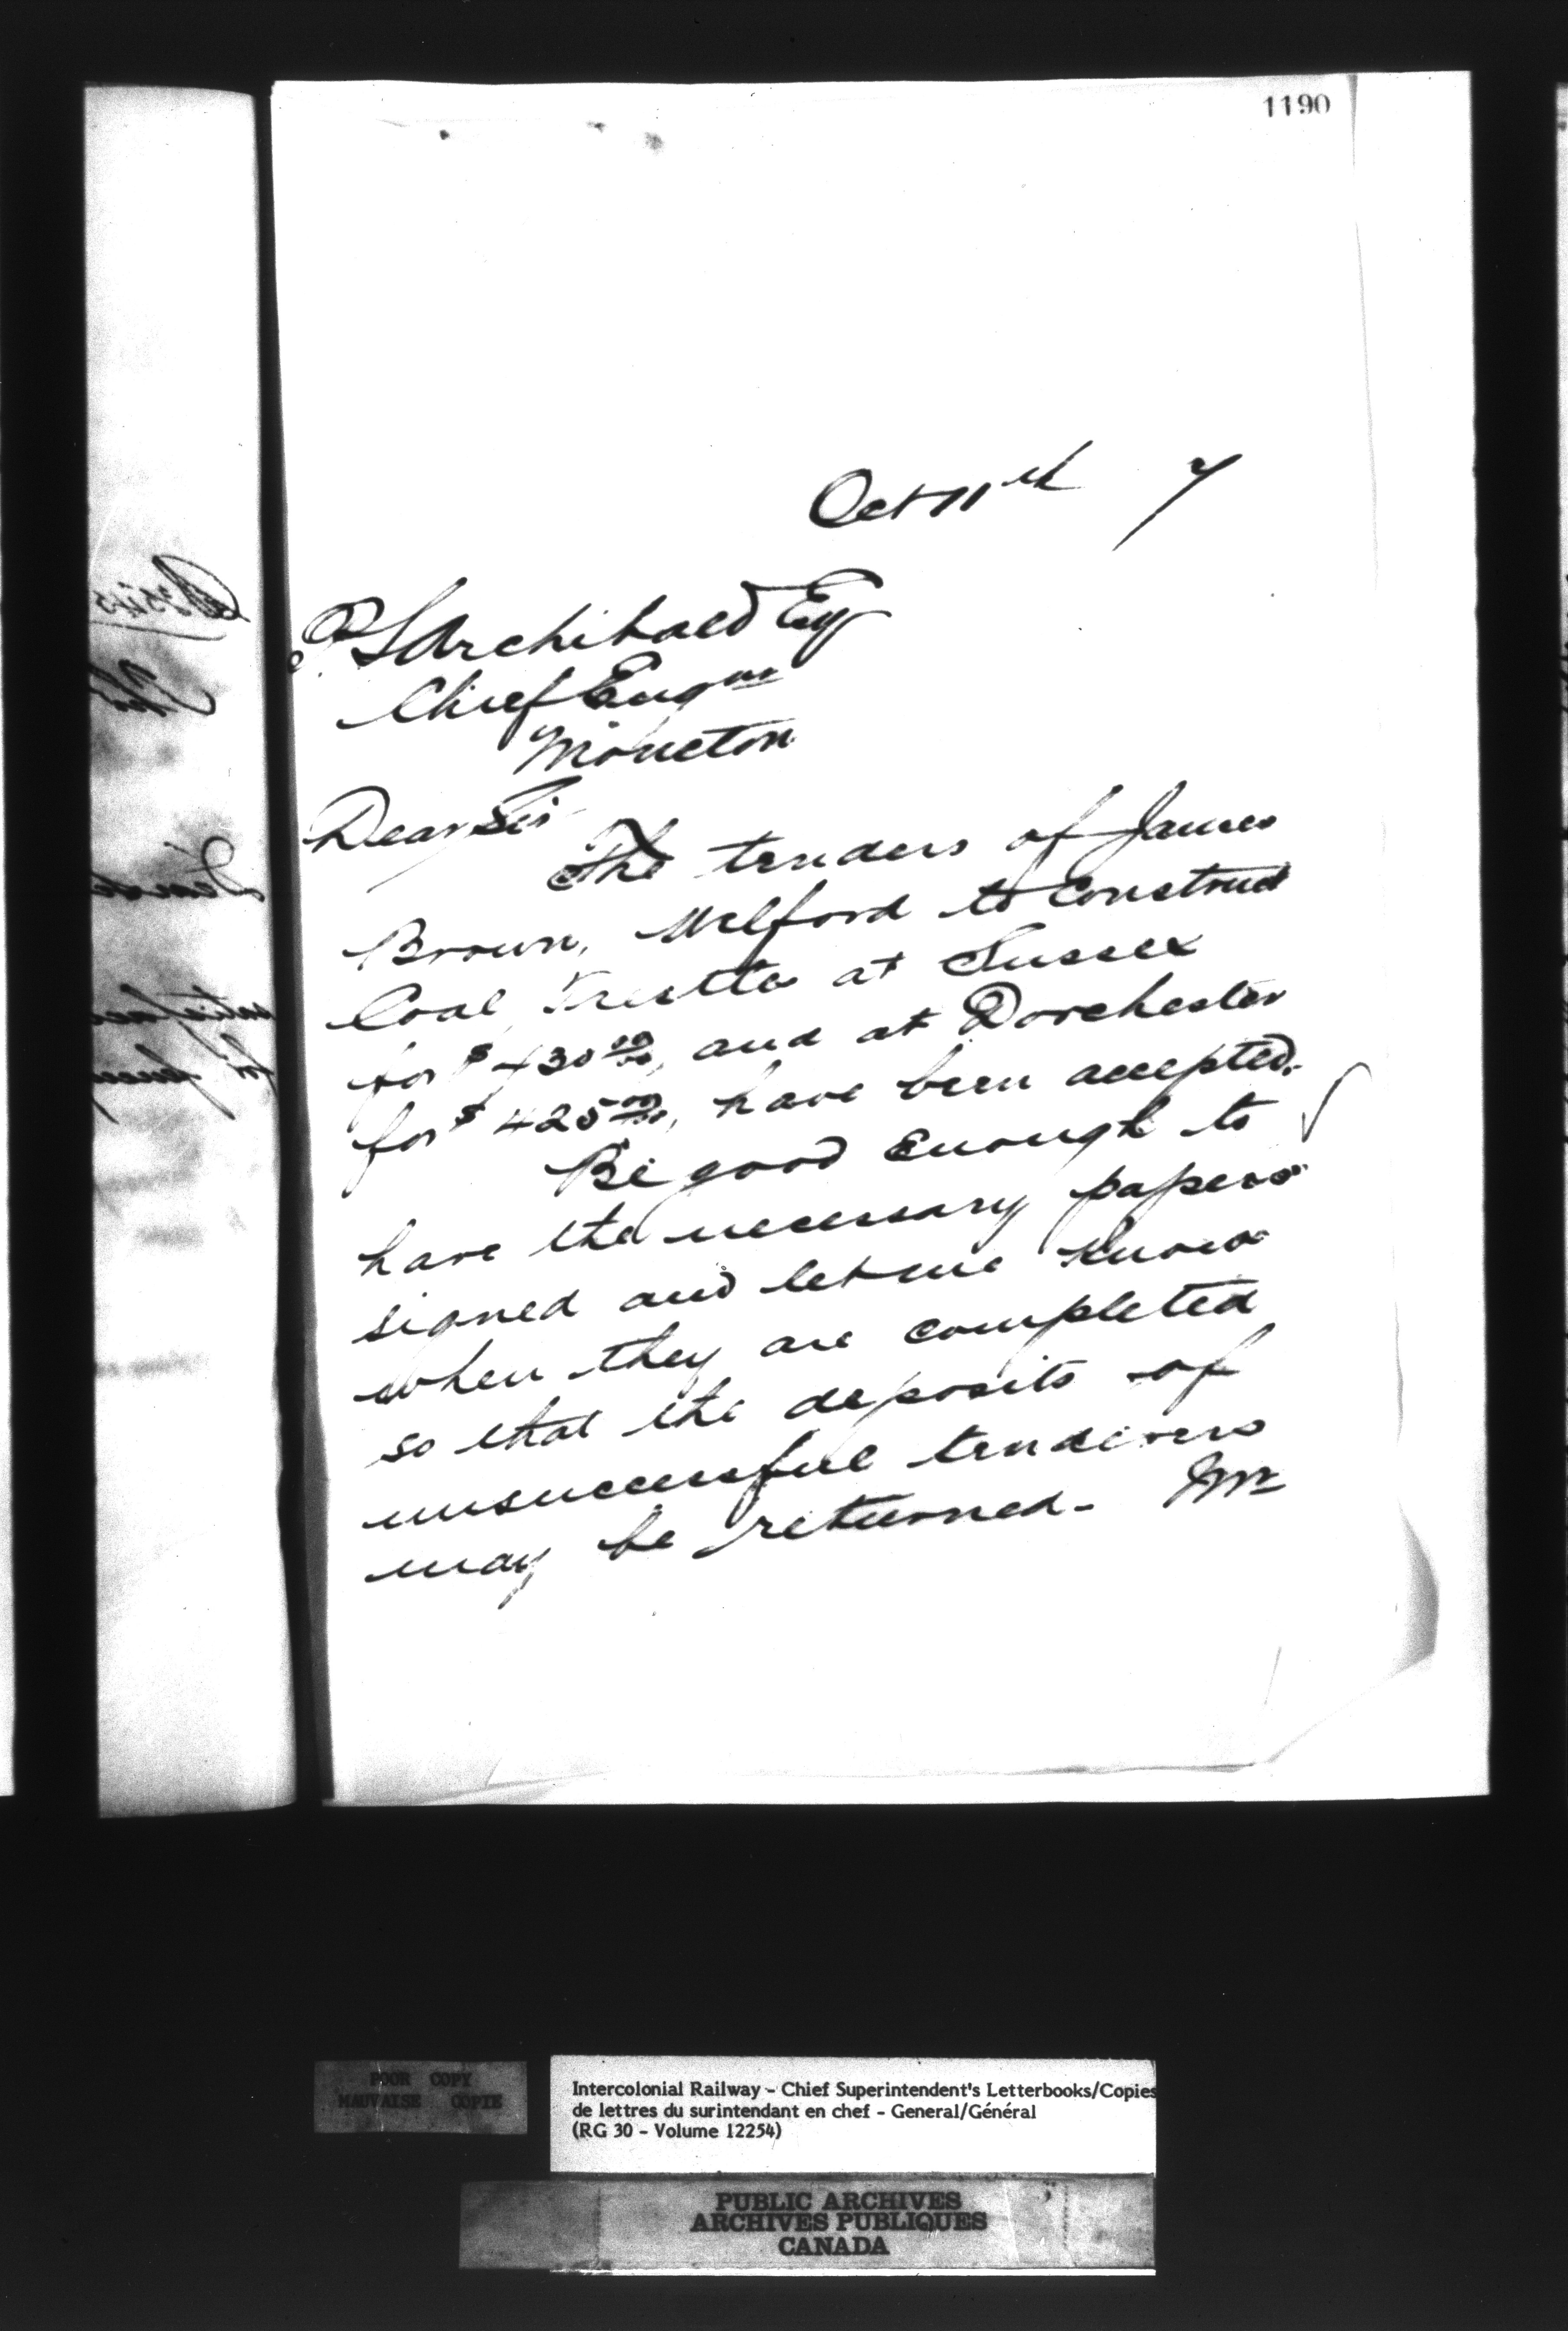 1190
Oct 11th 7
P S Archibald Esq
Chief Engnr
Moncton
Dear Sir
The tenders of James
Brown, Milford to construct
Coal Trestles at Sussex
for $430 00/00, and at Dorchester
for $425 00/00, have been accepted.
Be good enough to
have the necessary papers
signed and let me know
when they are completed
so that the deposits of
unsuccessful tenderers
may be returned - Mr
POOR COPY
MAUVAISE COPIE
Intercolonial Railway - Chief Superintendent's Letterbooks/Copies
de lettres du surintendant en chef - General/Général
(RG 30 - Volume 12254)
PUBLIC ARCHIVES
ARCHIVES PUBLIQUES
CANADA